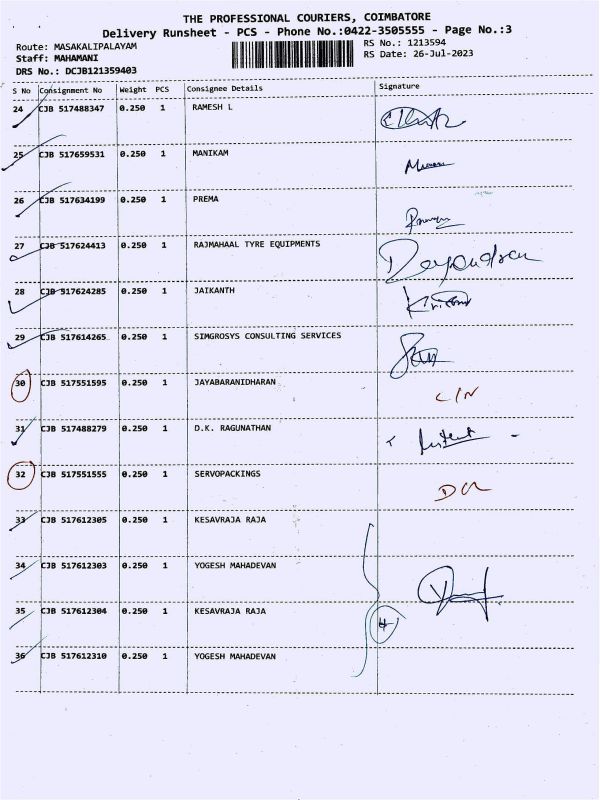 THE PROFESSIONAL COURIERS, COIMBATORE
Delivery Runsheet - PCS - Phone No.:0422-3505555 - Page No.:3
Route: MASAKALIPALAYAM
RS No.: 1213594
Staff: MAHAMANI
RS Date: 26-Jul-2023
DRS No.: DCJB121359403
S No Consignment No Weight PCS Consignee Details Signature
24 CJB 517488347 0.250 1 RAMESH L
25 CJB 517659531 0.250 1 MANIKAM
26 CJB 517634199 0.250 1 PREMA
27 CJB 517624413 0.250 1 RAJMAHAAL TYRE EQUIPMENTS
28 CJB 517624285 0.250 1 JAIKANTH
29 CJB 517614265 0.250 1 SIMGROSYS CONSULTING SERVICES
30 CJB 517551595 0.250 1 JAYABARANIDHARAN
31 CJB 517488279 0.250 1 D.K. RAGUNATHAN
32 CJB 517551555 0.250 1 SERVOPACKINGS
33 CJB 517612305 0.250 1 KESAVRAJA RAJA
34 CJB 517612303 0.250 1 YOGESH MAHADEVAN
35 CJB 517612304 0.250 1 KESAVRAJA RAJA
4
36 CJB 517612310 0.250 1 YOGESH MAHADEVAN